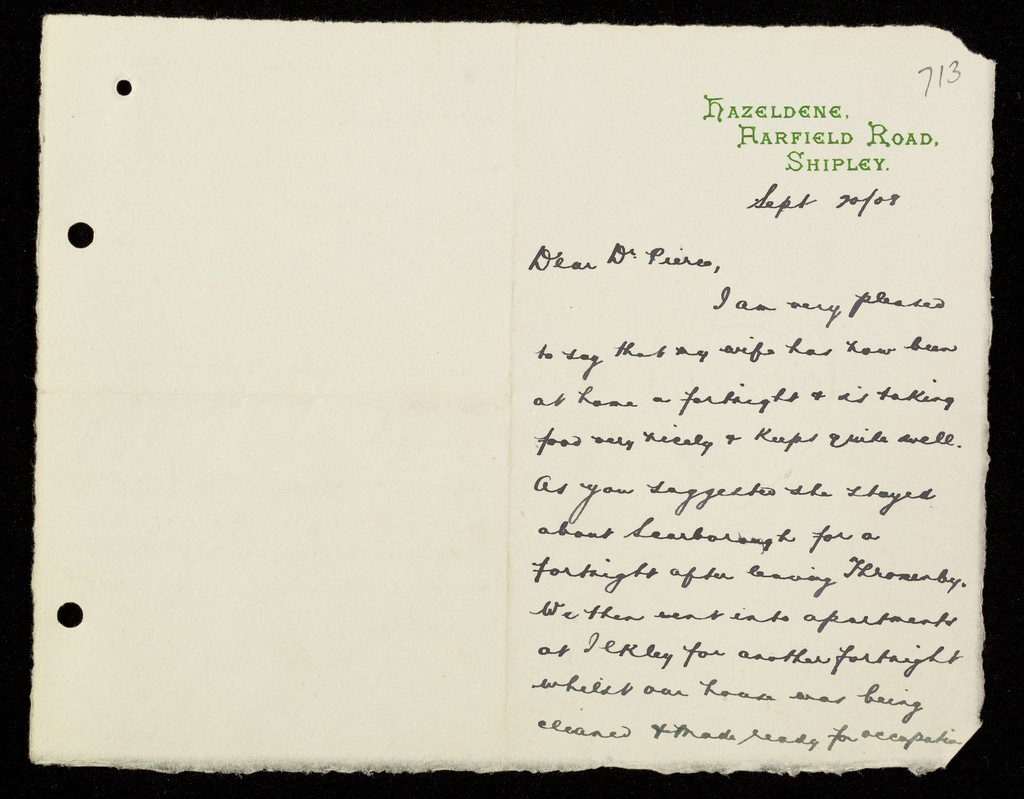 713
Hazeldene,
Harfield Road,
Shipley.
Sept 20/08
Dear Dr. Pierce,
I am very pleased
to say that my wife has now been
at home a fortnight & is taking
food very nicely & keeps quite well.
As you suggested she stayed
about Scarborough for a
fortnight after leaving Throxenby.
We then went into apartments
at Ilkley for another fortnight
whilst our house was being
cleaned & made ready for occupation